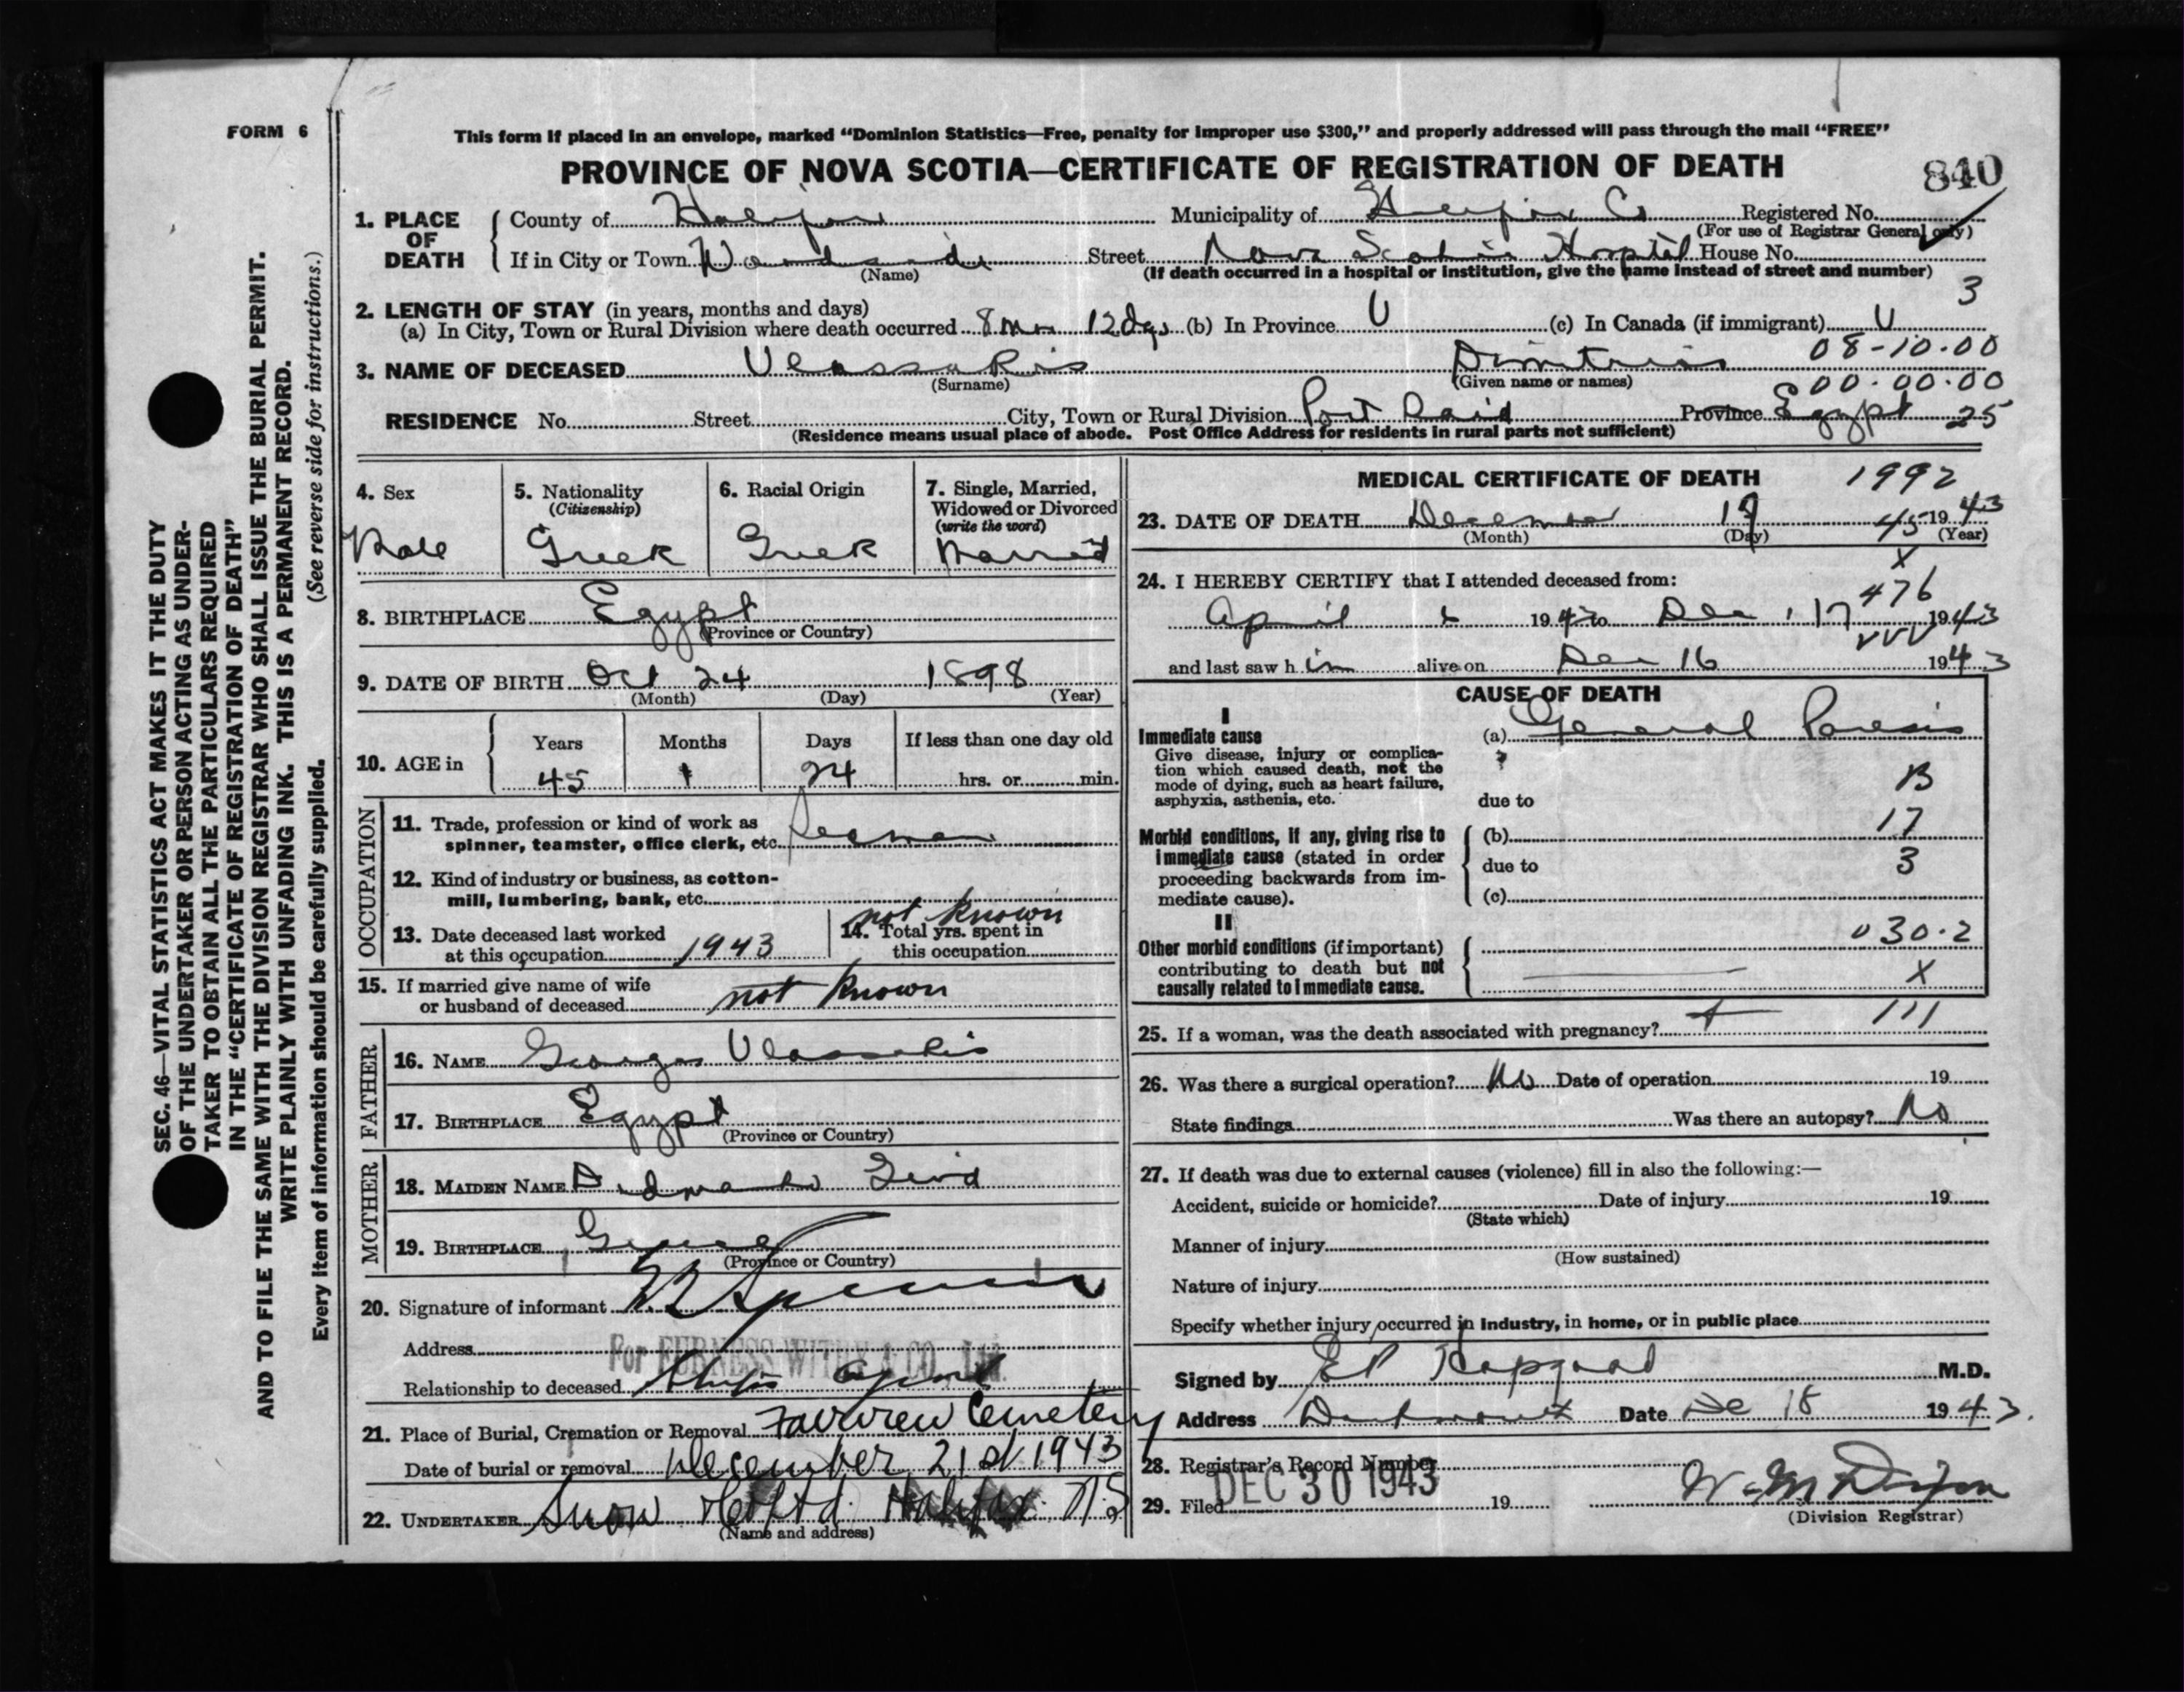 FORM 6
This form if placed in an envelope, marked “Dominion Statistics—Free, penalty for improper use $300,” and properly addressed will pass through the mail “FREE”
PROVINCE OF NOVA SCOTIA—CERTIFICATE OF REGISTRATION OF DEATH
840
1. PLACE OF DEATH County of Halifax Municipality of Halifax Co Registered No.
(For use of Registrar General only)
If in City or Town Woodside Street Nova Scotia Hospital House No.
(Name) (If death occurred in a hospital or institution, give the name instead of street and number)
3
2. LENGTH OF STAY (in years, months and days)
(a) In City, Town or Rural Division where death occurred 8 Mos 12 dys (b) In Province U (c) In Canada (if immigrant) U
08-10-00
3. NAME OF DECEASED Vlassakis Dimitrios
(Surname) (Given name or names)
00-00-00
RESIDENCE No. Street City, Town or Rural Division Port Said Province Egypt 25
(Residence means usual place of abode. Post Office Address for residents in rural parts not sufficient)
4. Sex Male
5. Nationality (Citizenship) Greek
6. Racial Origin Greek
7. Single, Married, Widowed or Divorced (write the word) Married
8. BIRTHPLACE Egypt
(Province or Country)
9. DATE OF BIRTH Oct 24 1898
(Month) (Day) (Year)
10. AGE in Years Months Days If less than one day old
45 1 24 hrs. or min.
OCCUPATION
11. Trade, profession or kind of work as
spinner, teamster, office clerk, etc. Seaman
12. Kind of industry or business, as cotton-
mill, lumbering, bank, etc.
13. Date deceased last worked
at this occupation 1943
14. Total yrs. spent in
this occupation not known
15. If married give name of wife
or husband of deceased not known
FATHER
16. NAME Georges Vlassakis
17. BIRTHPLACE Egypt
(Province or Country)
MOTHER
18. MAIDEN NAME
19. BIRTHPLACE Greece
(Province or Country)
20. Signature of informant
Address For FURNESS WITHY & CO., Ltd.
Relationship to deceased Ships Agent
21. Place of Burial, Cremation or Removal Fairview Cemetery
Date of burial or removal December 21st 1943
22. UNDERTAKER Snow & Co Ltd. Halifax. N.S
(Name and address)
MEDICAL CERTIFICATE OF DEATH 1992
23. DATE OF DEATH December 45 1943
(Month) (Day) (Year)
X
24. I HEREBY CERTIFY that I attended deceased from:
476
April 1943 to Dec 17 1943
VVV
and last saw h im alive on Dec 16 1943
CAUSE OF DEATH
I
Immediate cause (a) General Paresis
Give disease, injury or complica-
tion which caused death, not the
mode of dying, such as heart failure,
asphyxia, asthenia, etc.
B
due to
17
Morbid conditions, if any, giving rise to (b)
immediate cause (stated in order due to 3
proceeding backwards from im-
mediate cause). (c)
II
030.2
Other morbid conditions (if important)
contributing to death but not X
causally related to immediate cause.
25. If a woman, was the death associated with pregnancy? 111
26. Was there a surgical operation? No Date of operation 19
State findings Was there an autopsy? No
27. If death was due to external causes (violence) fill in also the following:—
Accident, suicide or homicide? Date of injury 19
(State which)
Manner of injury
(How sustained)
Nature of injury
Specify whether injury occurred in Industry, in home, or in public place
Signed by M.D.
Address Dartmouth Date Dec 18 1943.
28. Registrar's Record Number
29. Filed DEC 30 1943 19
W. M. Dixon
(Division Registrar)
SEC. 46—VITAL STATISTICS ACT MAKES IT THE DUTY
OF THE UNDERTAKER OR PERSON ACTING AS UNDER-
TAKER TO OBTAIN ALL THE PARTICULARS REQUIRED
IN THE “CERTIFICATE OF REGISTRATION OF DEATH”
AND TO FILE THE SAME WITH THE DIVISION REGISTRAR WHO SHALL ISSUE THE BURIAL PERMIT.
WRITE PLAINLY WITH UNFADING INK. THIS IS A PERMANENT RECORD.
Every item of information should be carefully supplied. (See reverse side for instructions.)